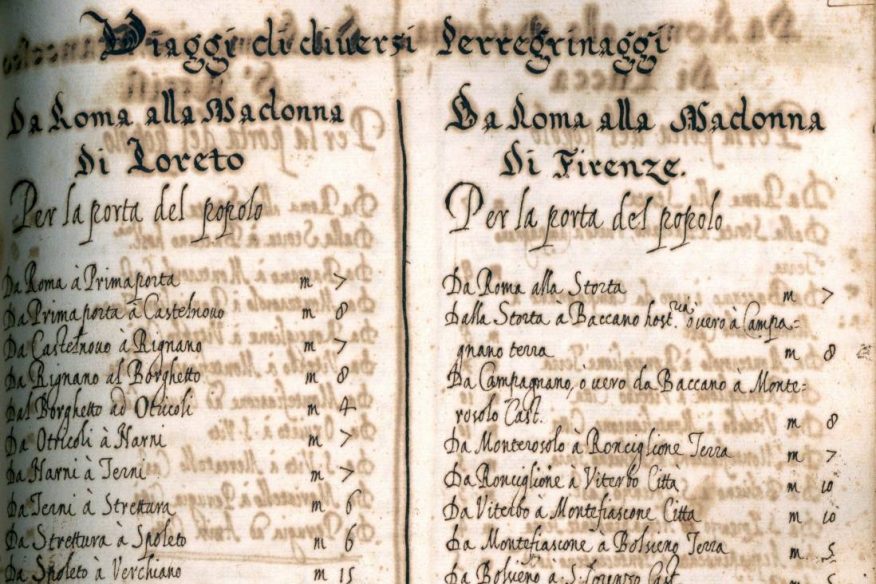 Viaggi di diversi Perregrinaggi
Da Roma alla Madonna
di Loreto
Per la porta del popolo
Da Roma à Primaporta m 7
Da Primaporta à Castelnovo m 8
Da Castelnovo à Rignano m 7
Da Rignano al Borghetto m 8
Dal Borghetto ad Otricoli m 4
Da Otricoli à Narni m 7
Da Narni à Terni m 7
Da Terni à Strettura m 6
Da Strettura à Spoleto m 6
Da Spoleto à Verchiano m 15
Da Roma alla Madonna
Di Firenze.
Per la porta del popolo
Da Roma alla Storta m 7
Dalla Storta à Baccano host.ria ò vero à Campa-
gnano terra m 8
Da Campagnano, ò vero da Baccano à Monte-
rosolo Cast. m 8
Da Monterosolo à Ronciglione Terra m 7
Da Ronciglione à Viterbo Città m 10
Da Viterbo à Montefiascone Citta m 10
Da Montefiascone à Bolseno Terra m 5
Da Bolseno à S. Lorenzo Cast. m 5